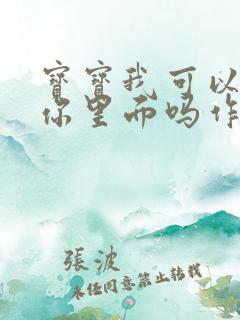 寶寶我可以
你里面吗作
張波
未经同意禁止转载